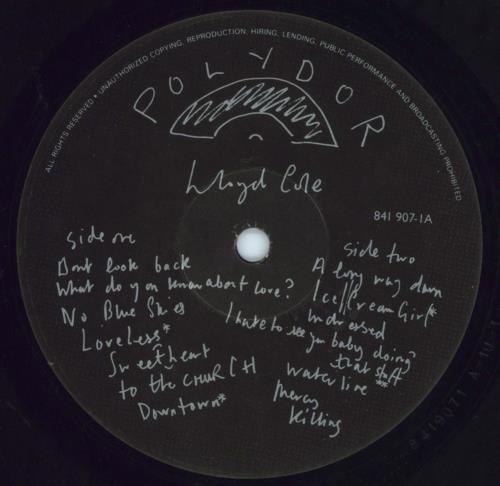 ALL RIGHTS RESERVED • UNAUTHORIZED COPYING, REPRODUCTION, HIRING, LENDING, PUBLIC PERFORMANCE AND BROADCASTING PROHIBITED
POLYDOR
Lloyd Cole
841 907-1A
side one
Dont look back
What do you know about love?
No Blue Skies
Loveless*
Sweetheart
to the CHURCH
Downtown*
side two
A long way down
Ice Cream Girl*
undressed
I hate to see you baby doing
that stuff
waterline**
Mercy
Killing